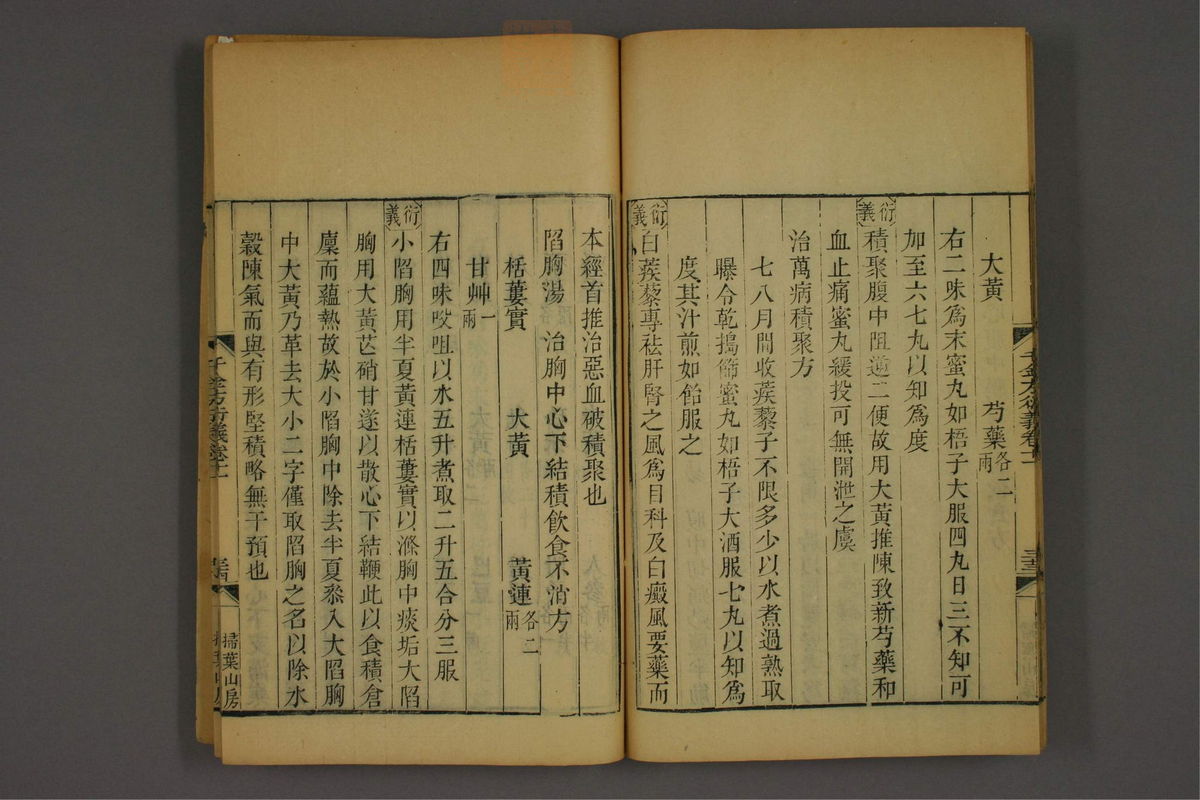 大黃 芍藥各二兩
右二味爲末蜜丸如梧子大服四丸日三不知可
加至六七丸以知爲度
衍義
積聚腹中阻逆二便故用大黃推陳致新芍藥和
血止痛蜜丸緩投可無開泄之虞
治萬病積聚方
七八月間收蒺藜子不限多少以水煮過熟取
曝令乾搗篩蜜丸如梧子大酒服七丸以知爲
度其汁煎如飴服之
衍義
白蒺藜專祛肝腎之風爲目科及白癜風要藥而
本經首推治惡血破積聚也
陷胸湯 治胸中心下結積飲食不消方
栝蔞實 大黃 黃連各二兩
甘艸一兩
右四味㕮咀以水五升煮取二升五合分三服
衍義
小陷胸用半夏黃連栝蔞實以滌胸中痰垢大陷
胸用大黃芒硝甘遂以散心下結鞭此以食積倉
廩而蘊熱故於小陷胸中除去半夏叅入大陷胸
中大黃乃革去大小二字僅取陷胸之名以除水
穀陳氣而與有形堅積略無干預也
千金方衍義卷十一
掃葉山房